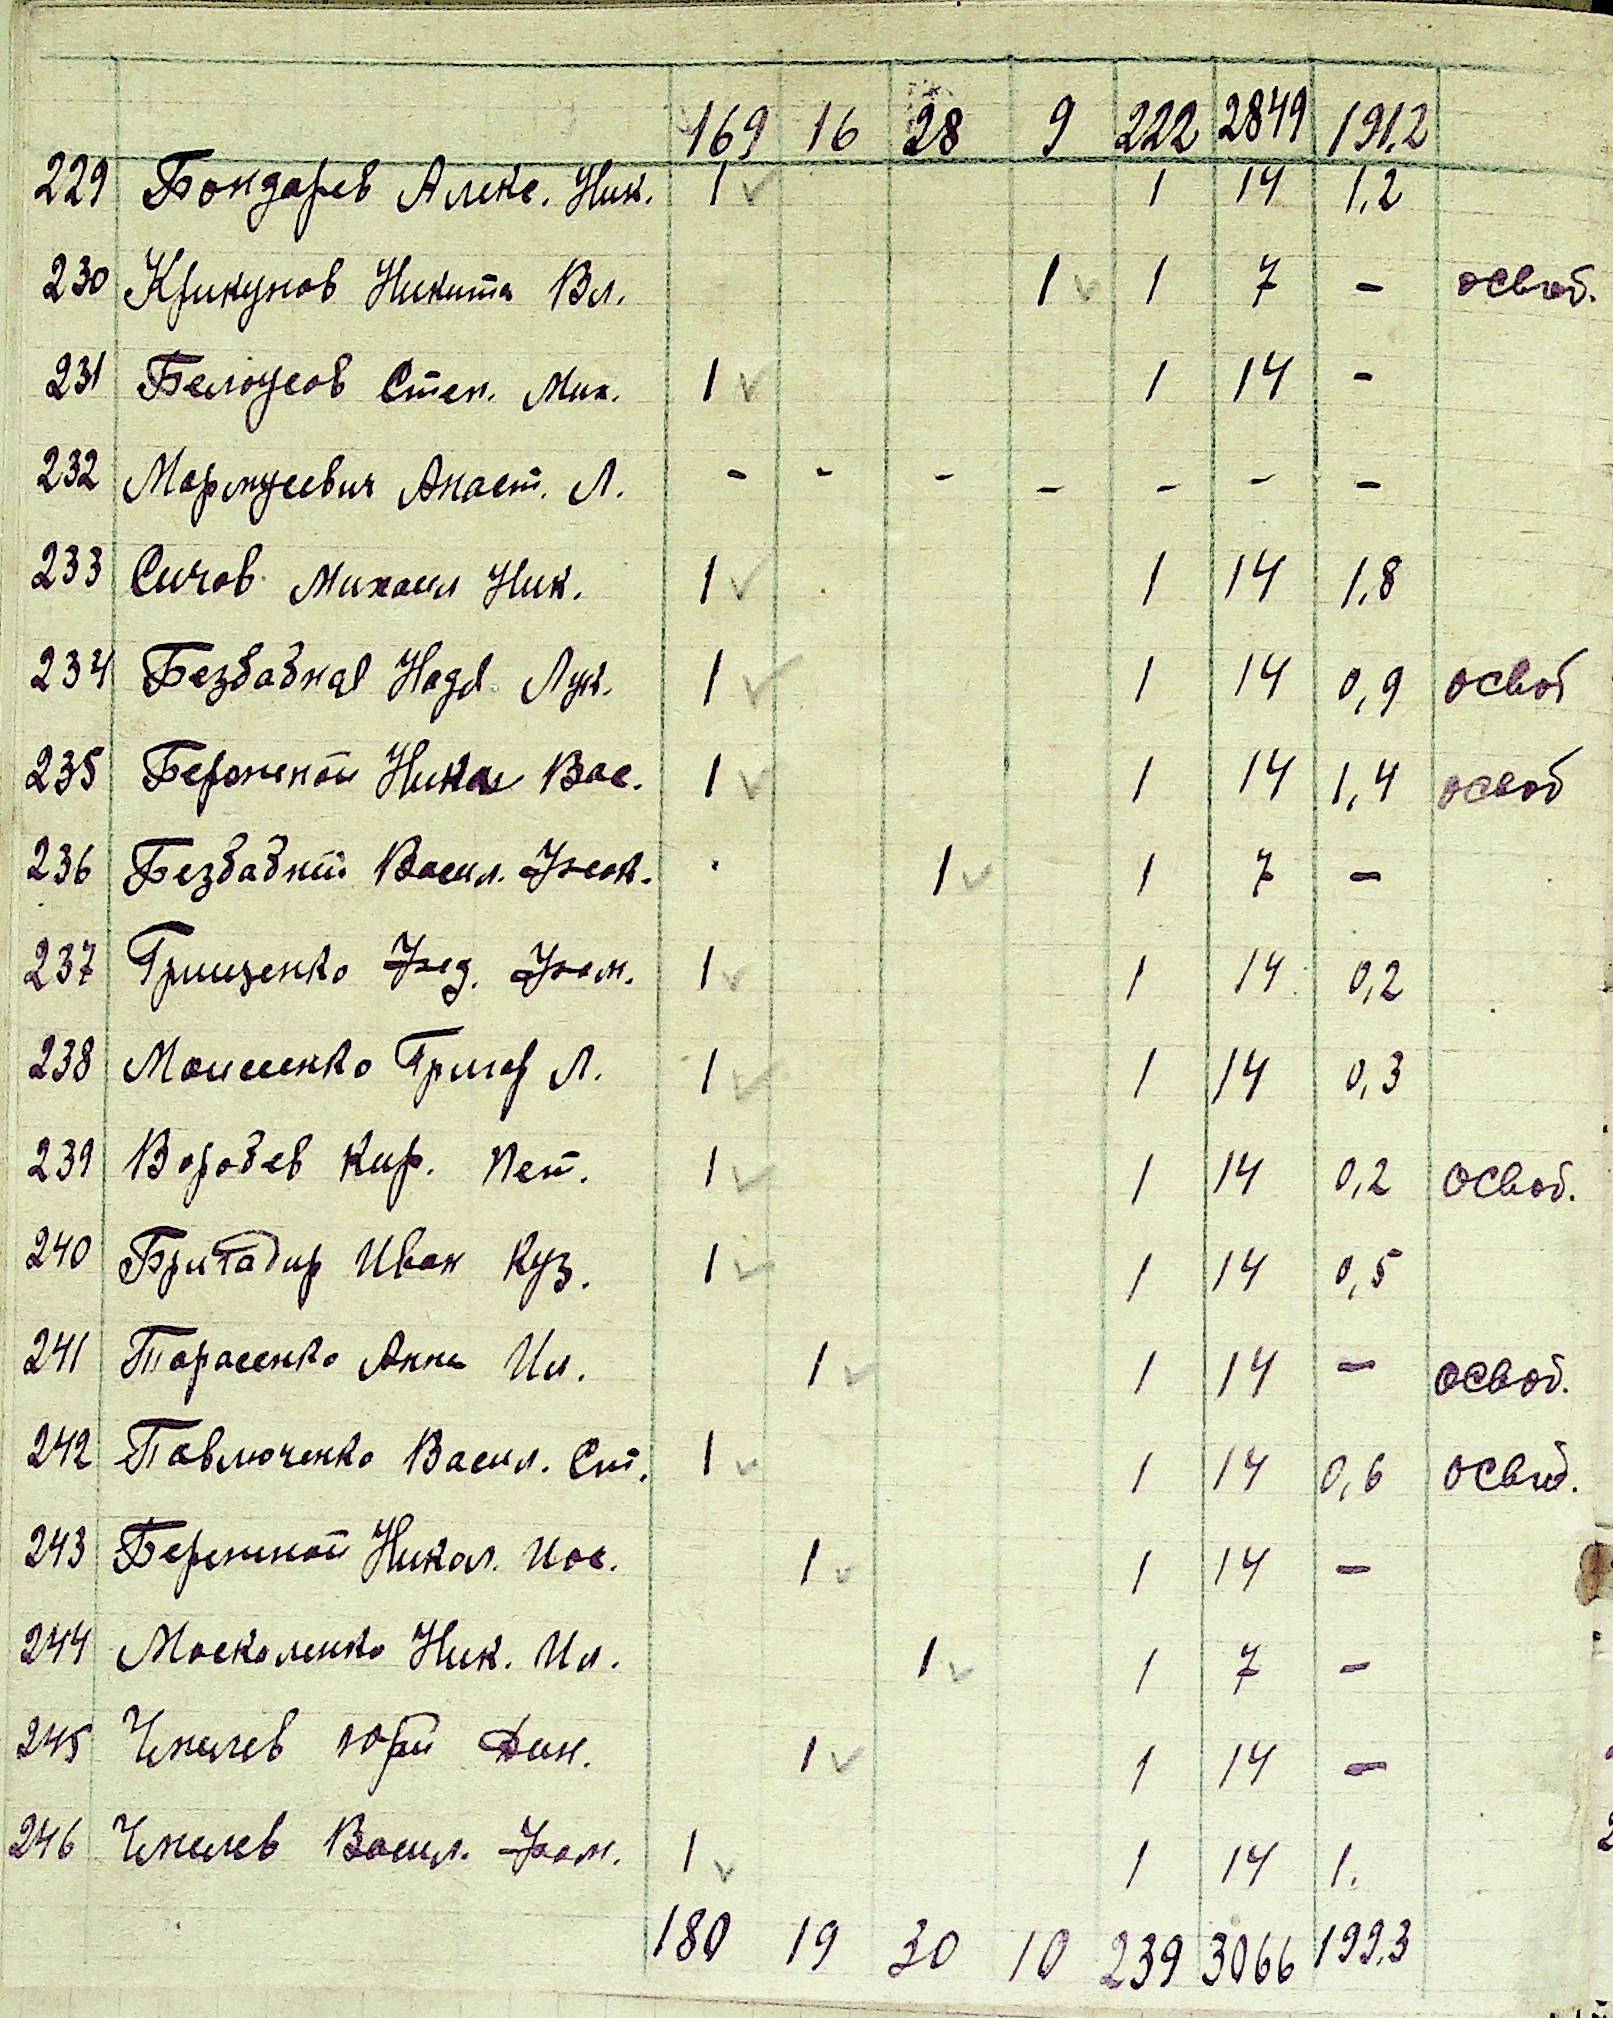 169 16 28 9 222 2849 191,2
229 Бондарев Алекс. Ник. 1 ✓ 1 14 1,2
230 Крикунов Никита Вл. 1 ✓ 1 7 - освоб.
231 Белоусов Степ. Мих. 1 ✓ 1 14 -
232 Мармусевич Анаст. Л. - - - - - - -
233 Сичов Михаил Ник. 1 ✓ 1 14 1,8
234 Безбабная Надя Лук. 1 ✓ 1 14 0,9 освоб
235 Бережной Никол Вас. 1 ✓ 1 14 1,4 освоб
236 Безбабный Васил. Феок. 1 ✓ 1 7 -
237 Грищенко Фед. Фом. 1 ✓ 1 14 0,2
238 Моисеенко Григор Л. 1 ✓ 1 14 0,3
239 Воробев Кир. Пет. 1 ✓ 1 14 0,2 освоб.
240 Бригадир Иван Куз. 1 ✓ 1 14 0,5
241 Тарасенко Анна Ил. 1 ✓ 1 14 - освоб.
242 Павлюченко Васил. Ст. 1 ✓ 1 14 0,6 освоб.
243 Бережной Никол. Иос. 1 ✓ 1 14 -
244 Москаленко Ник. Ил. 1 ✓ 1 7 -
245 Чмелев Юрий 1 ✓ 1 14 -
246 Чмелев Васил. Фом. 1 ✓ 1 14 1.
180 19 30 10 239 3066 199,3